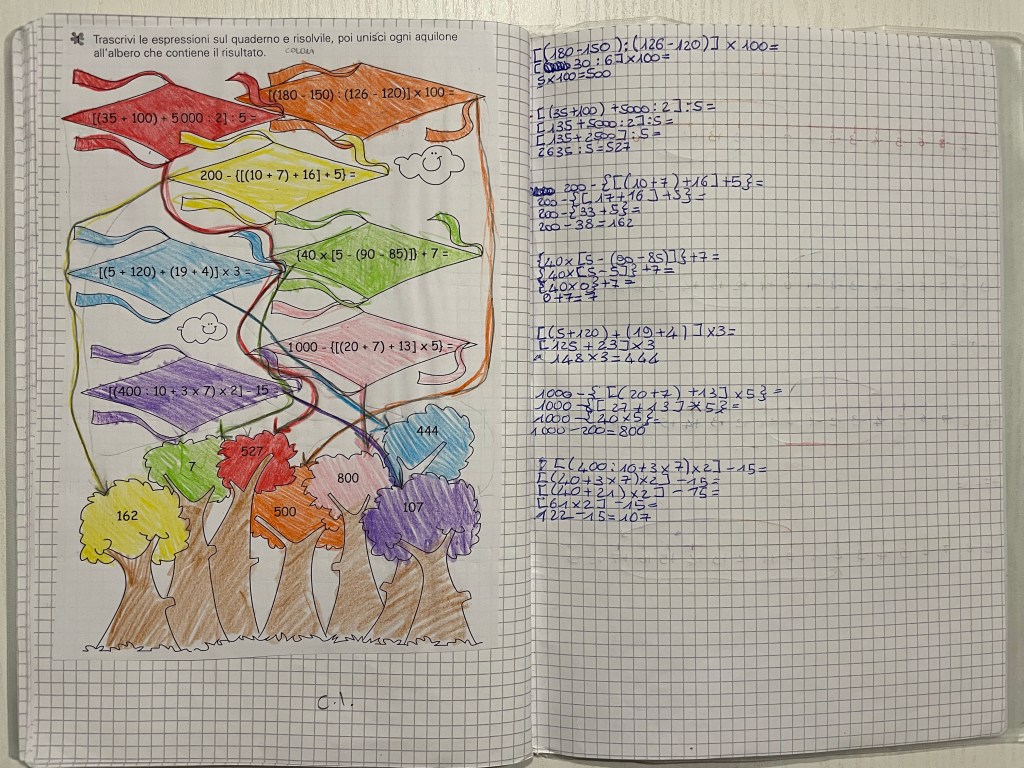 Trascrivi le espressioni sul quaderno e risolvile, poi unisci ogni aquilone
all'albero che contiene il risultato.
COLORA
[(180 - 150) : (126 - 120)] x 100 =
[(35 + 100) + 5 000 : 2] : 5 =
200 - {[(10 + 7) + 16] + 5} =
{40 x [5 - (90 - 85)]} + 7 =
[(5 + 120) + (19 + 4)] x 3 =
1 000 - {[(20 + 7) + 13] x 5} =
[(400 : 10 + 3 x 7) x 2] - 15 =
444
527
7
800
162
500
107
C.I.
[(180-150):(126-120)] x 100=
[30:6]x100=
5x100=500
[(35+100)+5000:2]:5=
[135+5000:2]:5=
[135+2500]:5=
2635:5=527
200-{[(10+7)+16]+5}=
200-{[17+16]+5}=
200-{33+5}=
200-38=162
{40x[5-(90-85)]}+7=
{40x[5-5]}+7=
{40x0}+7=
0+7=7
[(5+120)+(19+4)]x3=
[125+23]x3
148x3=444
1000-{[(20+7)+13]x5}=
1000-{[27+13]x5}=
1000-{40x5}=
1000-200=800
[(400:10+3x7)x2]-15=
[(40+3x7)x2]-15=
[(40+21)x2]-15=
[61x2]-15=
122-15=107